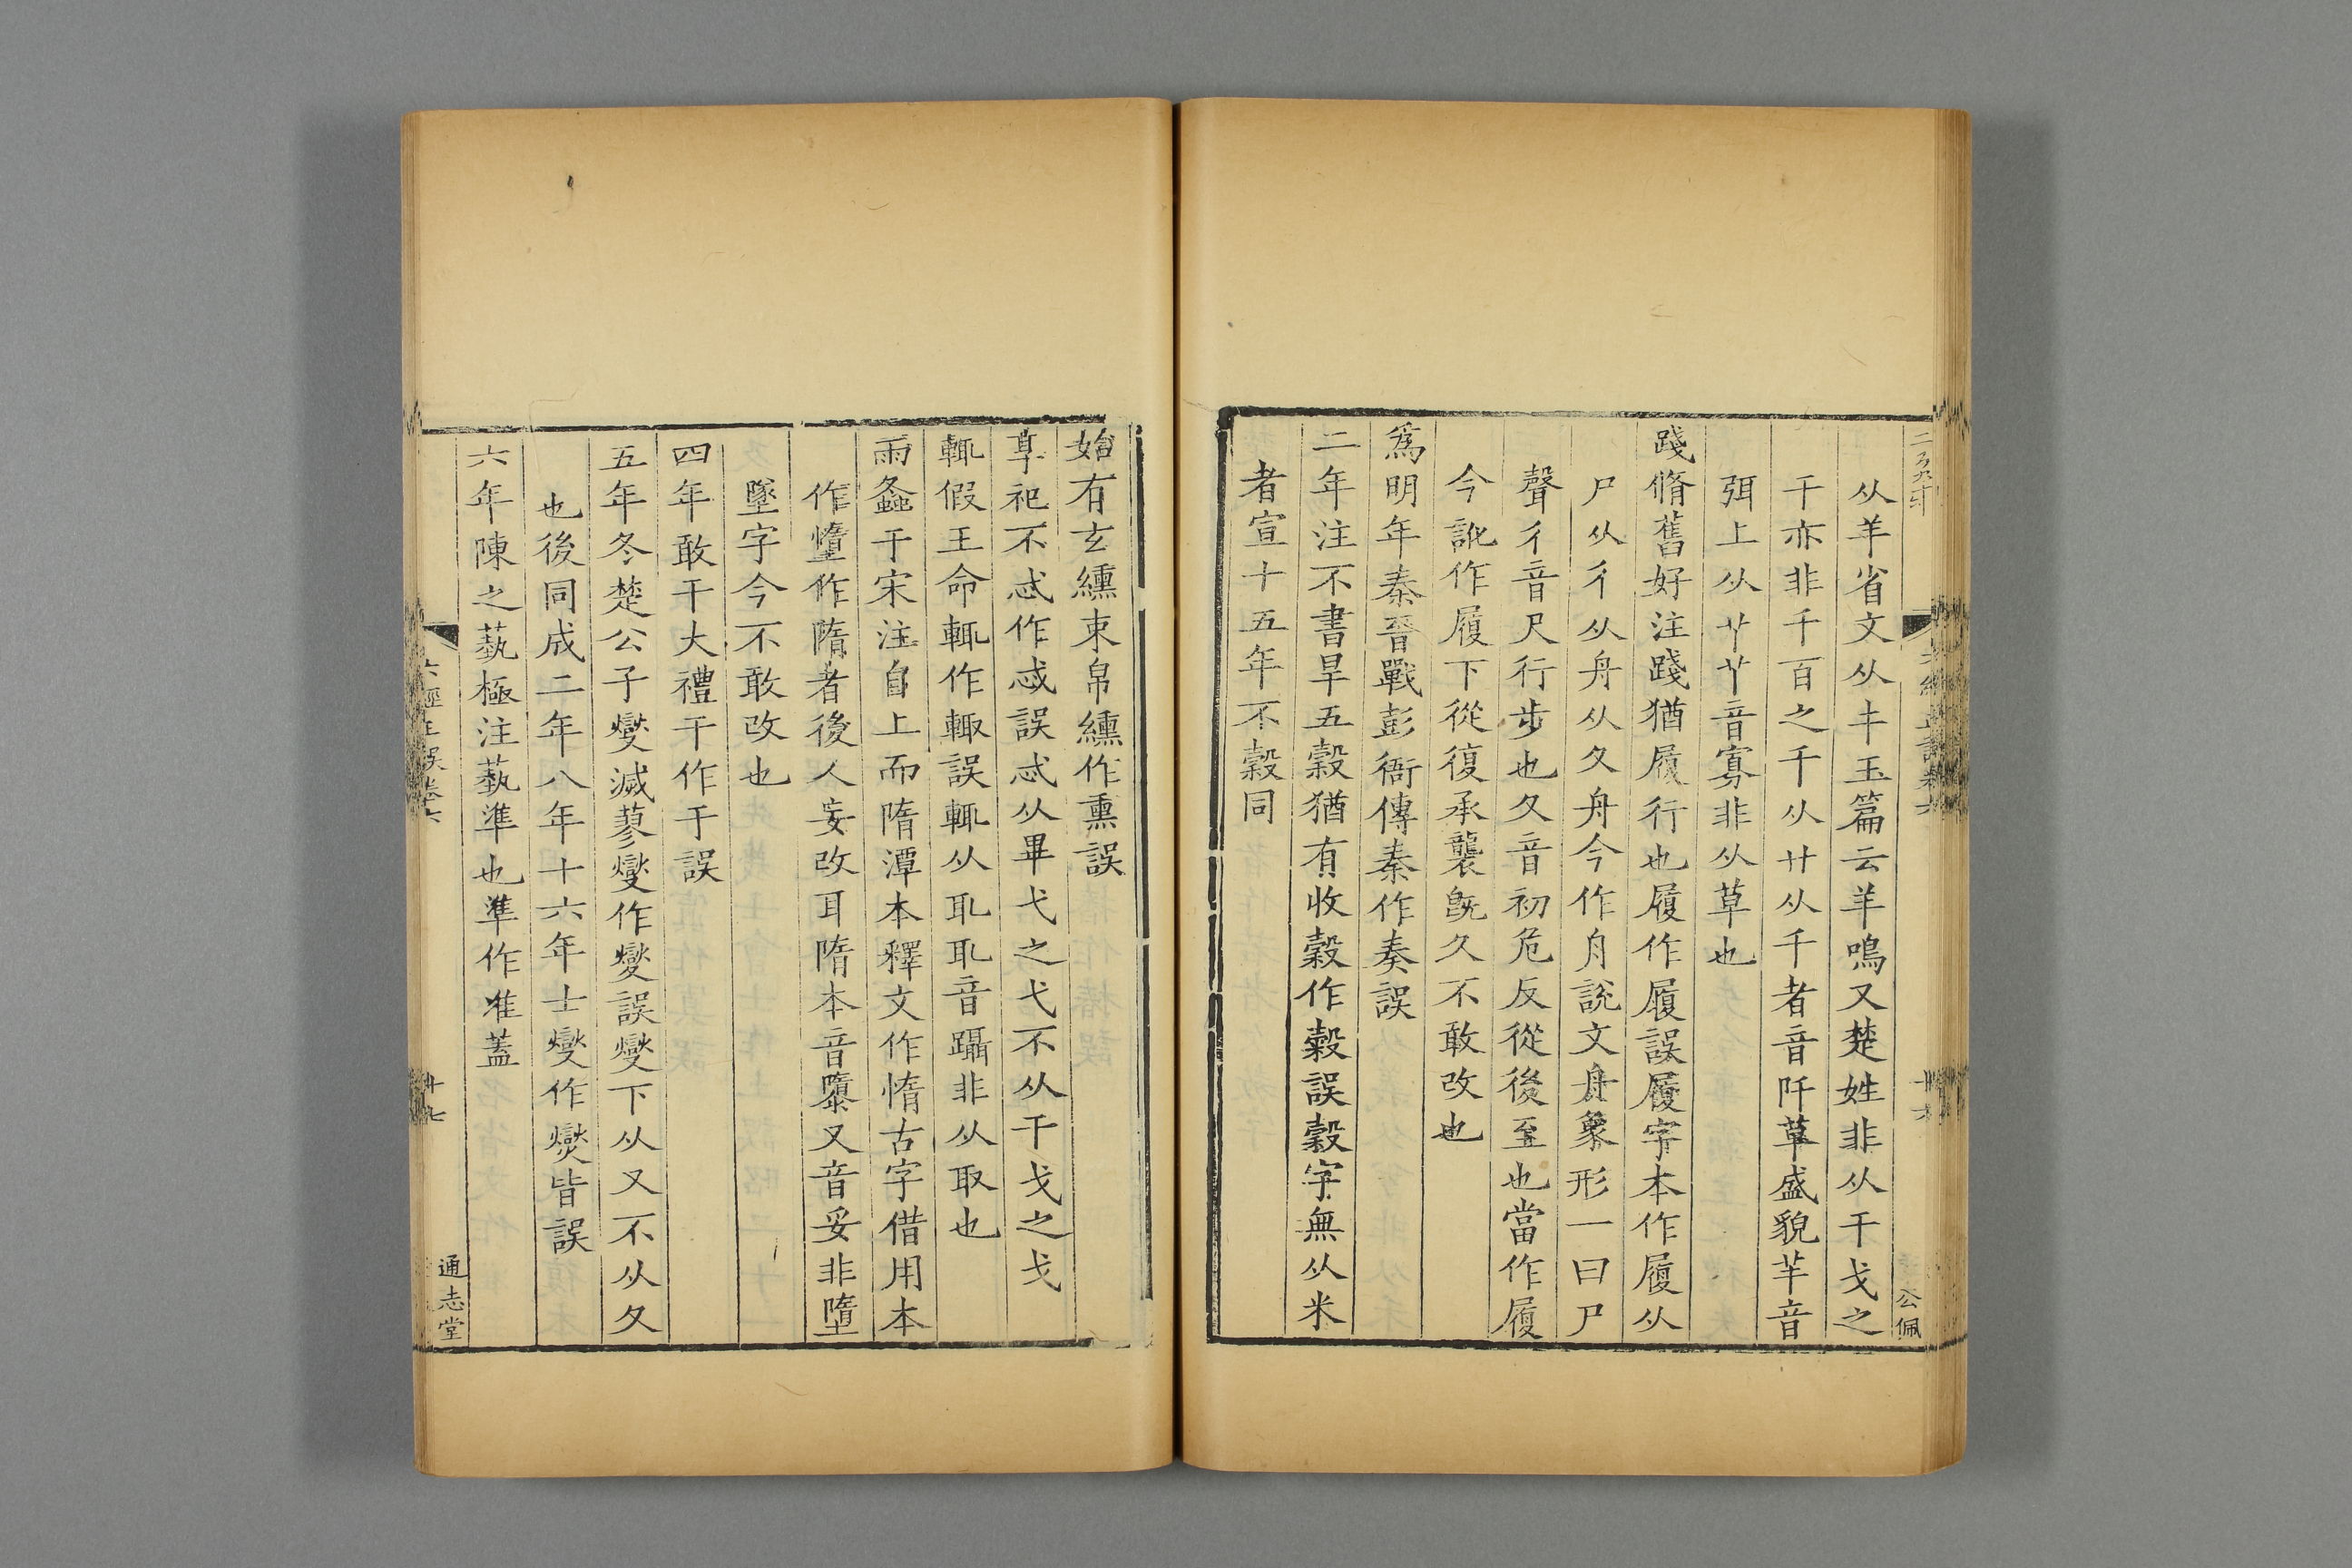 从羊省文从丰玉篇云羊鳴又楚姓非从干戈之
干亦非千百之千从廿从千者音阡草盛貌芊音
弭上从丫丫音寡非从草也
踐脩舊好注踐猶履行也履作履誤履字本作履从
尸从彳从舟从夂舟今作月說文舟象形一曰尸
聲彳音尺行步也夂音初危反從後至也當作履
今訛作履下從復承襲旣久不敢改也
爲明年秦晉戰彭衙傳秦作奏誤
二年注不書旱五穀猶有收穀作穀誤穀字無从米
者宣十五年不穀同
六經正誤卷六
公佩
始有玄纁束帛纁作熏誤
享祀不忒作忒誤忒从畢弋之弋不从干戈之戈
輒假王命輒作輙誤輒从耴耴音躡非从取也
雨螽于宋注自上而隋潭本釋文作惰古字借用本
作憜作隋者後人妄改耳隋本音隳又音妥非墮
墜字今不敢改也
四年敢干大禮干作于誤
五年冬楚公子燮滅蓼燮作變誤燮下从又不从夂
也後同成二年八年十六年士燮作爕皆誤
六年陳之蓺極注蓺準也準作准蓋
六經正誤卷六
廿七
通志堂